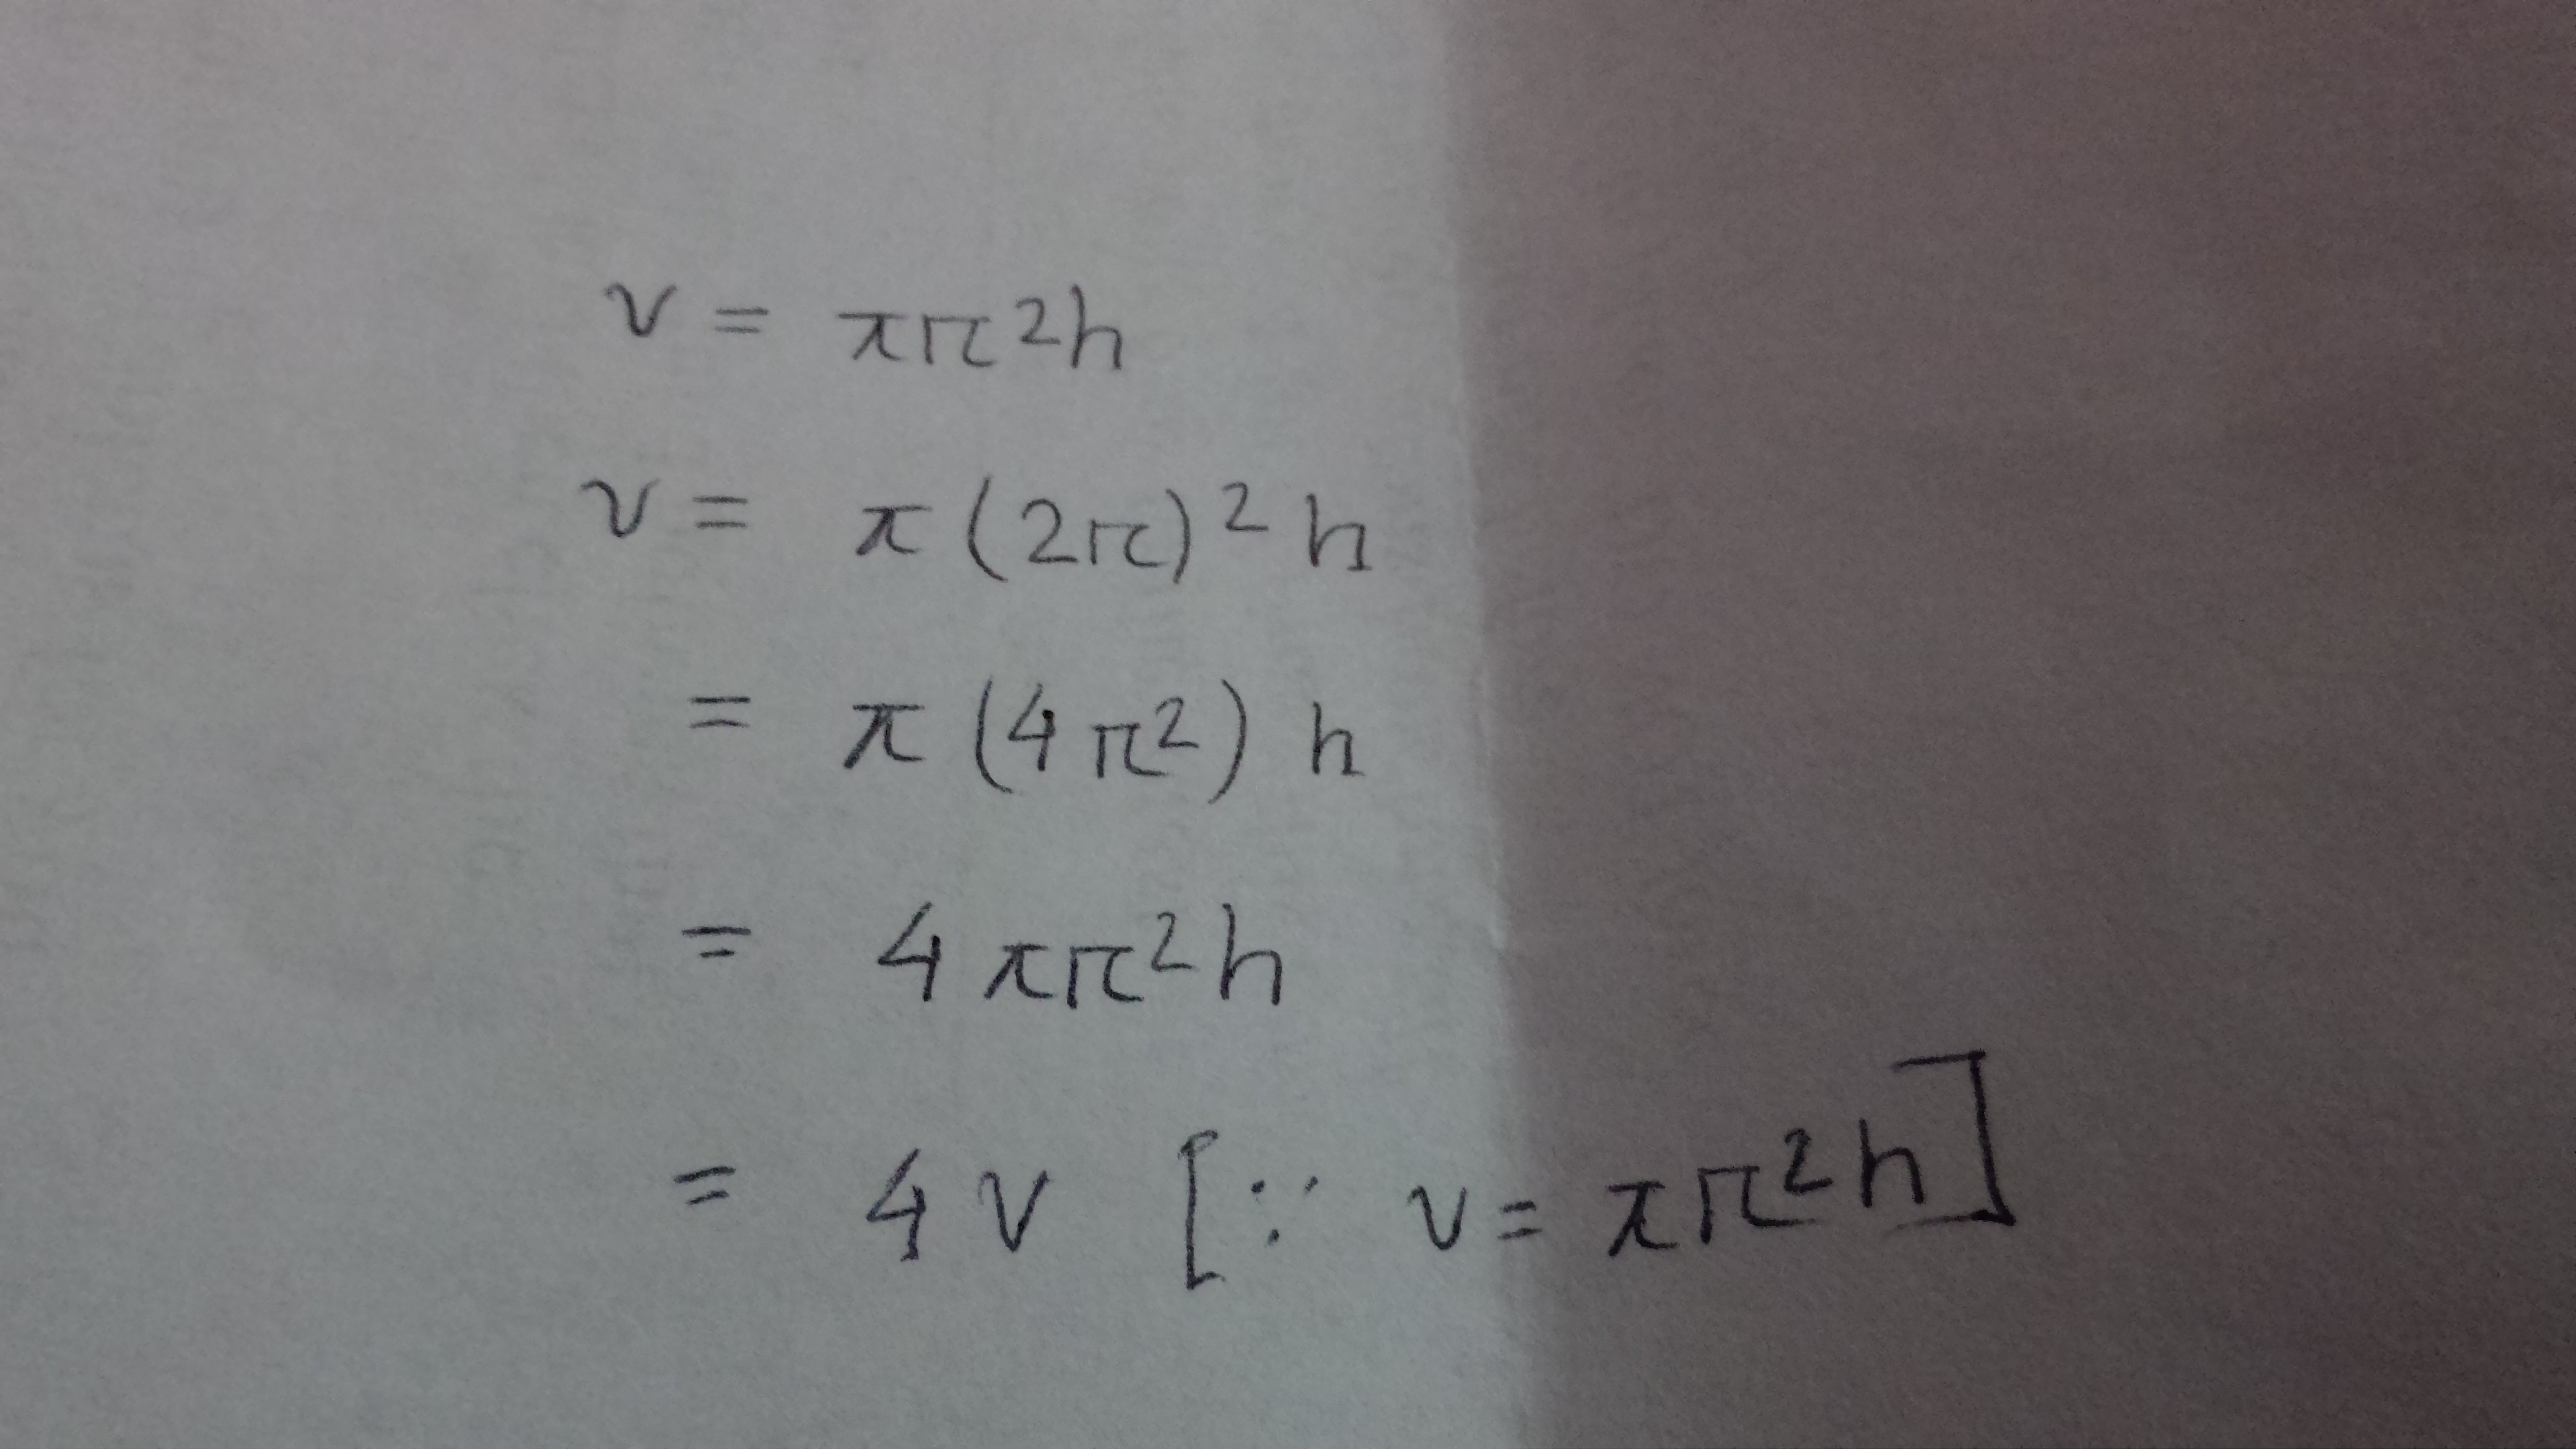 v = πr²h
v = π(2r)² h
= π (4r²) h
= 4πr²h
= 4v [∵ v = πr²h]